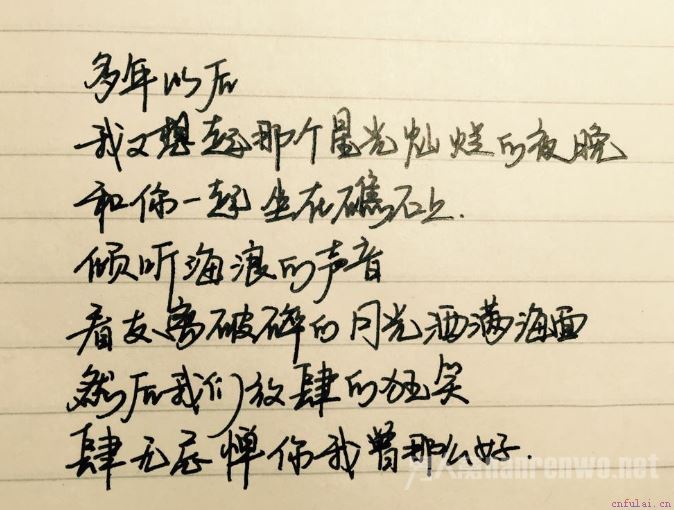 多年以后
我又想起那个星光灿烂的夜晚
和你一起坐在礁石上.
倾听海浪的声音
看支离破碎的月光洒满海面
然后我们放肆的狂笑
肆无忌惮你我曾那么好.
renwo.net
cnfulai.cn